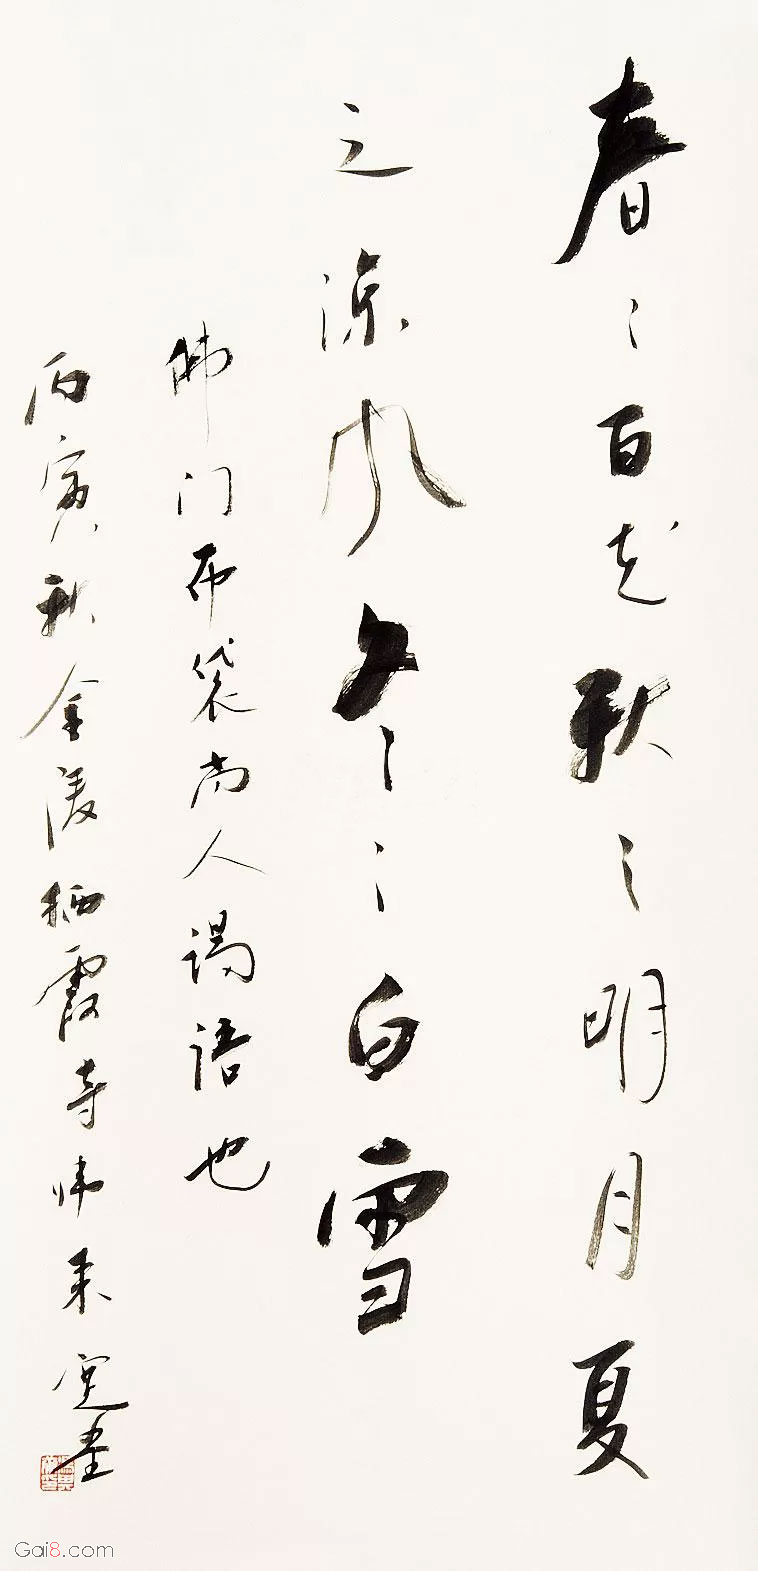 春之百花秋之明月夏
之凉风冬之白雪
佛门布袋尚人谒语也
丙寅秋金陵栖霞寺归来宽堂
Gai8.com